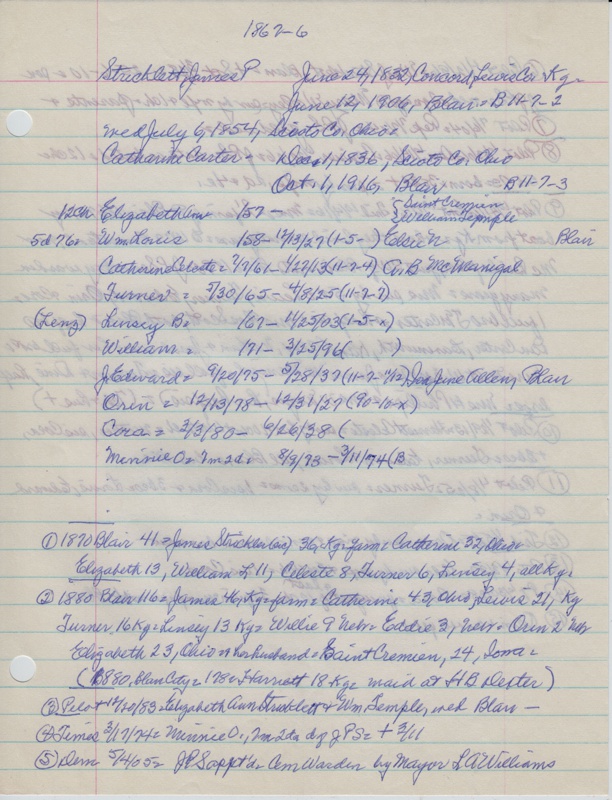 1862-6
Stricklett, James P. June 24, 1832, Concord, Lewis Co Ky-
June 12, 1906, Blair = B 11-7-2
wed July 6, 1854, Scioto Co, Ohio=
Catharine Carter - Dec 1, 1836, Scioto Co, Ohio
Oct 1, 1916, Blair B 11-7-3
12ch Elizabeth Ann /57 - {Saint Cremien
{William Semple
5d 76= Wm Louis /58 - 12/13/27 (1-5- ) Eddie N Blair
Catharine Celeste = 7/7/61 - 4/22/13 (11-7-4) A. B McManigal
Turner = 5/30/65 - 4/8/25 (11-7-7)
(Lenz) Linsey B. /67 - 1/25/03 (1-5-x)
William = /71 - 3/25/96 ( )
J. Edward = 9/20/75 - 5/28/37 (11-7-1/12) Ina June Allen, Blair
Orin = 12/13/78 - 12/31/27 (90-10-x)
Cora = 3/3/80 - 6/26/38 (
Minnie O = 7m 2d = 8/9/73 - 3/11/74 (B
① 1870 Blair 41 = James Stricklen (sic) 36, Ky = farm = Catharine 32, Ohio =
Elizabeth 13, William L 11, Celeste 8, Turner 6, Linsey 4, all Ky.
② 1880 Blair 116 = James 46, Ky = farm = Catherine 43, Ohio, Lewis 21, Ky
Turner 16 Ky = Linsey 13 Ky = Willie 9 Nebr = Eddie 3, Nebr = Orin 2 Nebr
Elizabeth 23, Ohio = & her husband = Saint Cremien, 24, Iowa =
(1880, Blair City = 178 = Harriett 18 Ky = maid at H B Dexter)
③ Pilot 12/20/83 = Elizabeth Ann Stricklett + Wm Semple, wed Blair -
④ Times 3/17/74 = Minnie O., 7m 2da dg J P S = + 3/11
⑤ Dem 5/4/05 = J P S appt'd = Cem Warden by Mayor L A Williams